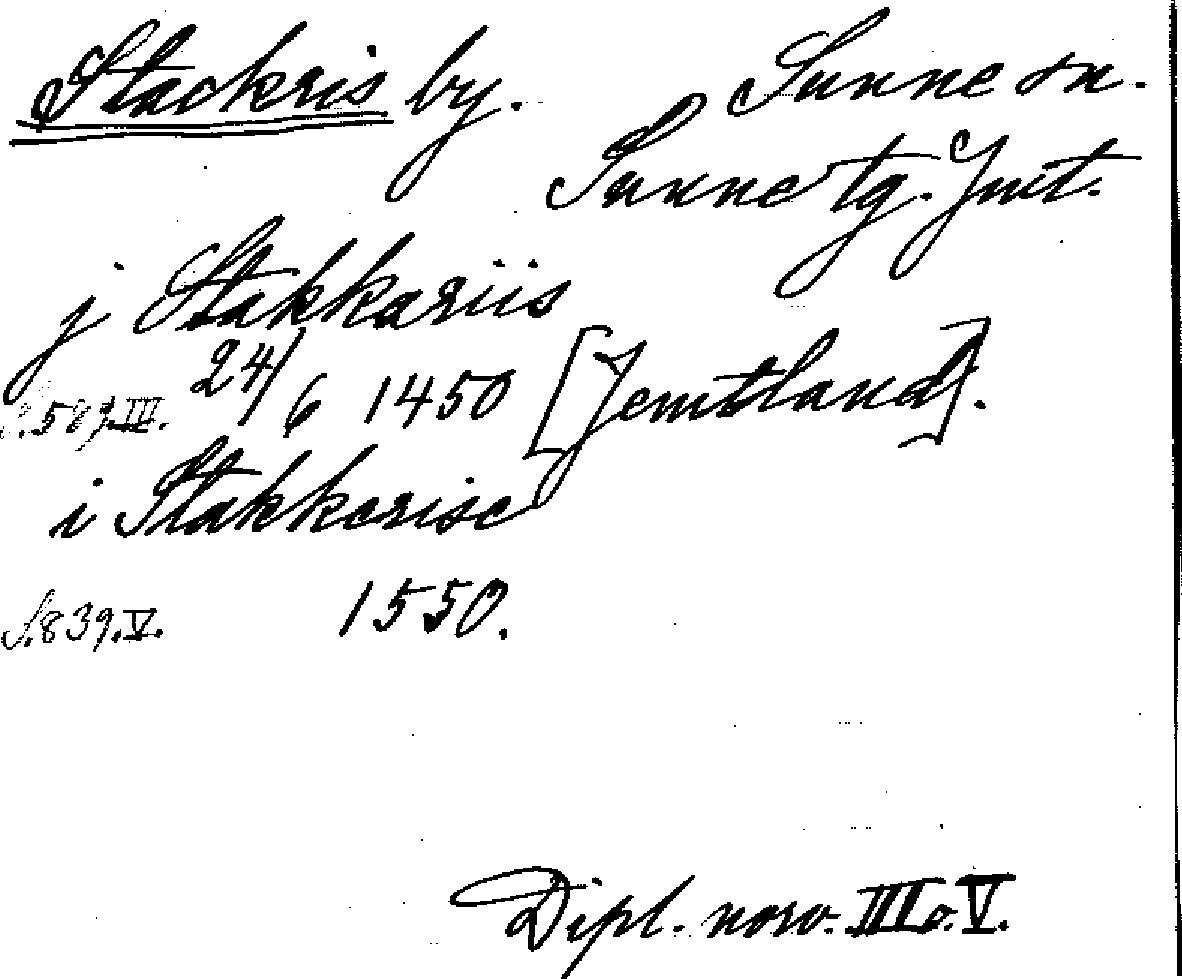 Stackris by. Sunne sn.
Sunne tg. Jmt.
j Stakkariis
S.589.III. 24/6 1450 [Jemtland].
i Stakkerise
S.839.V. 1550.
Dipl. norv. III o. V.